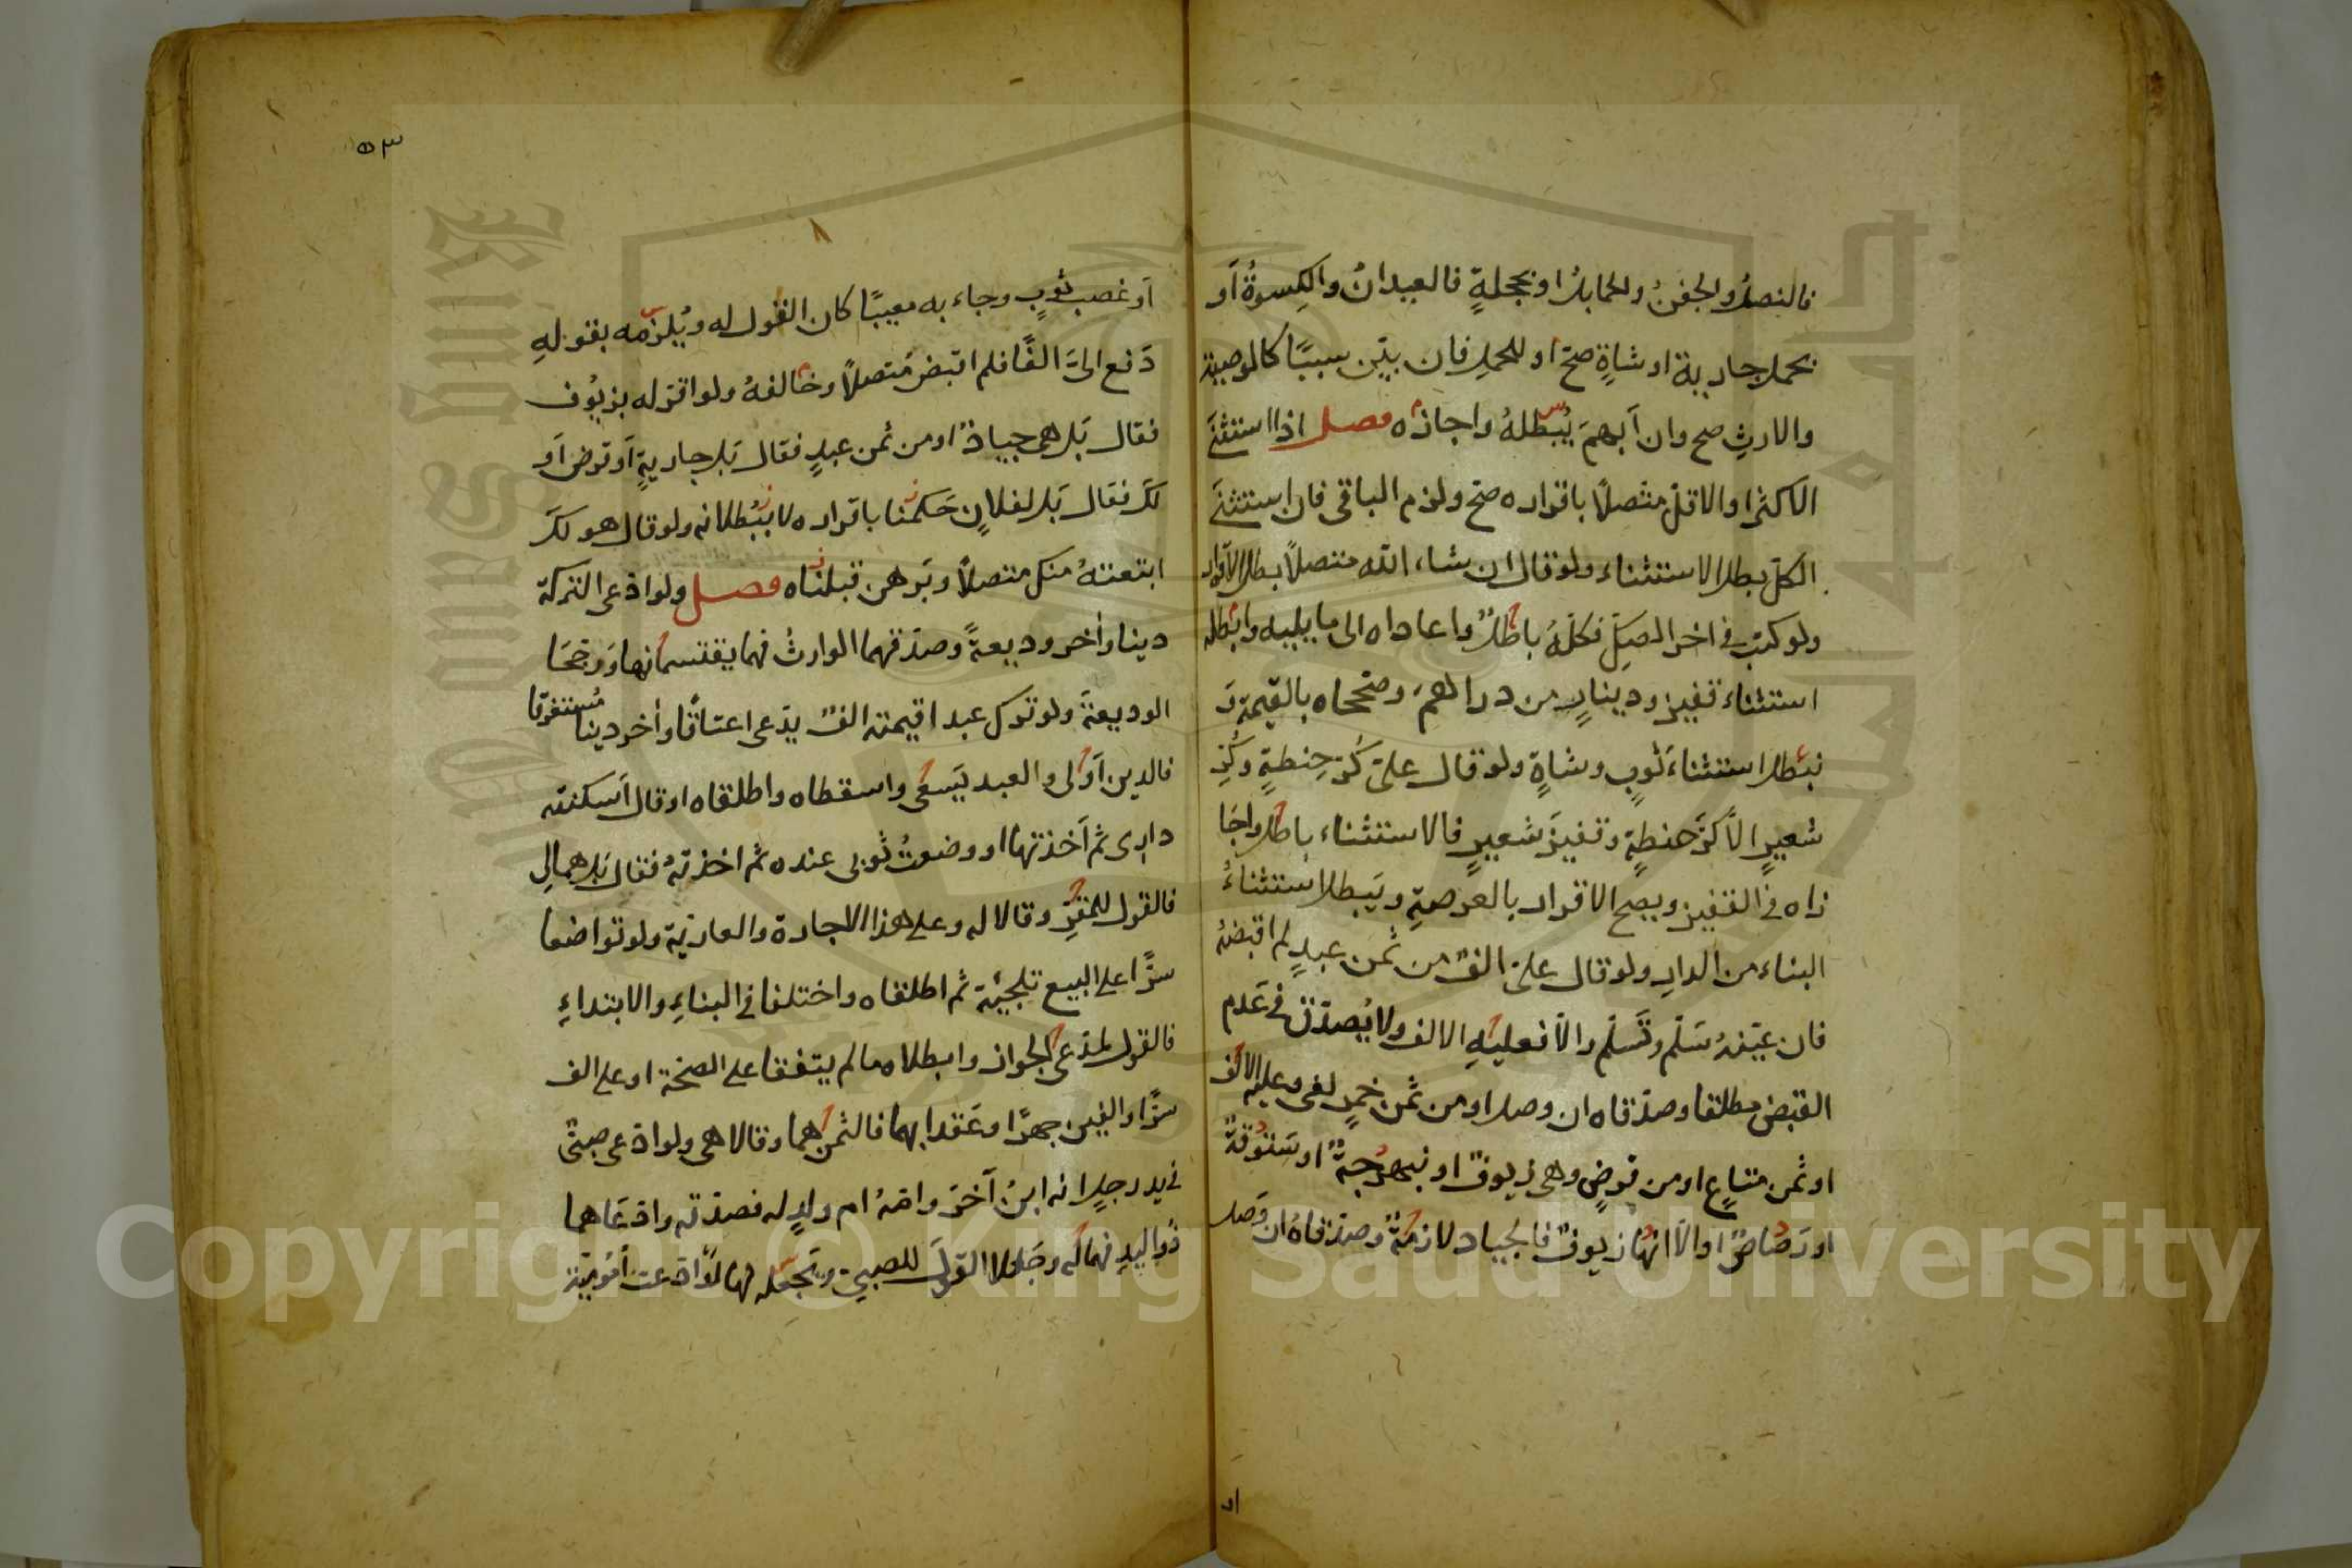 فالنصلُ والجفنُ والحمايلُ او بحجلةٍ فالعيدانُ والكِسوةُ أو
بحمل جارية او شاةٍ صحّ او للحملِ فان بيّن سببًا كالوصية
والارثِ صح وان أبهمَ يُبْطلهُ واجازه فصل اذا استثنَى
الاكثرَ او الاقلّ متّصلًا باقراره صحّ ولزم الباقي فان استثنَى
الكلّ بطل الاستثناء ولو قال ان شاء الله متصلًا بطل الاقرار
ولو كتب في اخر الصكِّ فكلّهُ باطلٌ واعاداه الى ما يليه وابطل
استثناء قفيز ودينارٍ من دراهمَ وصححاه بالقيمة وَ
نبطل استثناءَ ثوبٍ وشاةٍ ولو قال عليّ كُرّ حِنطةٍ وكُرّ
شعيرٍ الّا كرَّ حنطةٍ وقفيزَ شعيرٍ فالاستثناء باطل واجا
زاه في القفيز ويصح الاقرار بالعرصةِ ويَبطل استثناءُ
البناء من الدار ولو قال عليّ الفٌ من ثمن عبدٍ لم اقبضهُ
فان عيّنهُ سَلّم وتَسلّم والّا فعليهِ الالف ولا يُصدّق في عَدم
القبض مطلقا وصدّقاه ان وصل او من ثمن خمرٍ لغى وعليه الالف
او ثمن متاعٍ او من قرضٍ وهي زيوفٌ او نبهرجةٌ او سَتّوقةٌ
او رَصاصٌ او الّا انها زيوفٌ فالجياد لازمةٌ وصدّقاهُ ان وَصل
او
٥٣
أو غصب ثوبٍ وجاء به معيبًا كان القول له ويُلزمه بقولهِ
دَفع اليّ الفًا فلم اقبض متصلًا وخالفهُ ولو اقرّ له بزيُوف
فقال بَل هي جيادٌ او من ثمن عبدٍ فقال بَل جاريةٍ أو قرض أو
لكَ فقال بَل لفلانٍ حَكمنا باقراره لا ببُطلانه ولو قال هو لكَ
ابتعتهُ منك متصلًا وبَرهن قبلناه فصل ولو ادّعى التركة
دينا واخر وديعةً وصدّقهما الوارثُ فهما يقتسمانها وَرجّحَا
الوديعةَ ولو ترك عبدا قيمته الفٌ يدّعى اعتاقًا وأخر دينا مُستغرقا
فالدين أولى والعبد يَسعَى واسقطاه واطلقاه او قال أسكنته
دارى ثم آخذتها او وضعتُ ثوبى عنده ثم اخذتهُ فقال بَل هما لى
فالقول للمقرِّ وقالا له وعلى هذا الاجارة والعاريّة ولو تواضعا
سرًّا على البيع تلجيَة ثم اطلقاه واختلفا فى البناءِ والابتداءِ
فالقول لمدّعى الجواز وابطلاه ما لم يتفقا على الصحّة او على الف
سرًّا والفين جهرًا وعَقدا بهما فالثمن هما وقالا هى ولو ادّعى صبىٌّ
فى يد رجلٍ انه ابنُ آخرَ وامّهُ ام ولدٍ له فصدّقه وادّعَاهما
ذُو اليدِ فهما له وجَعلا القولَ للصبيّ ويَجعله لها لو ادّعت أمُوميّة